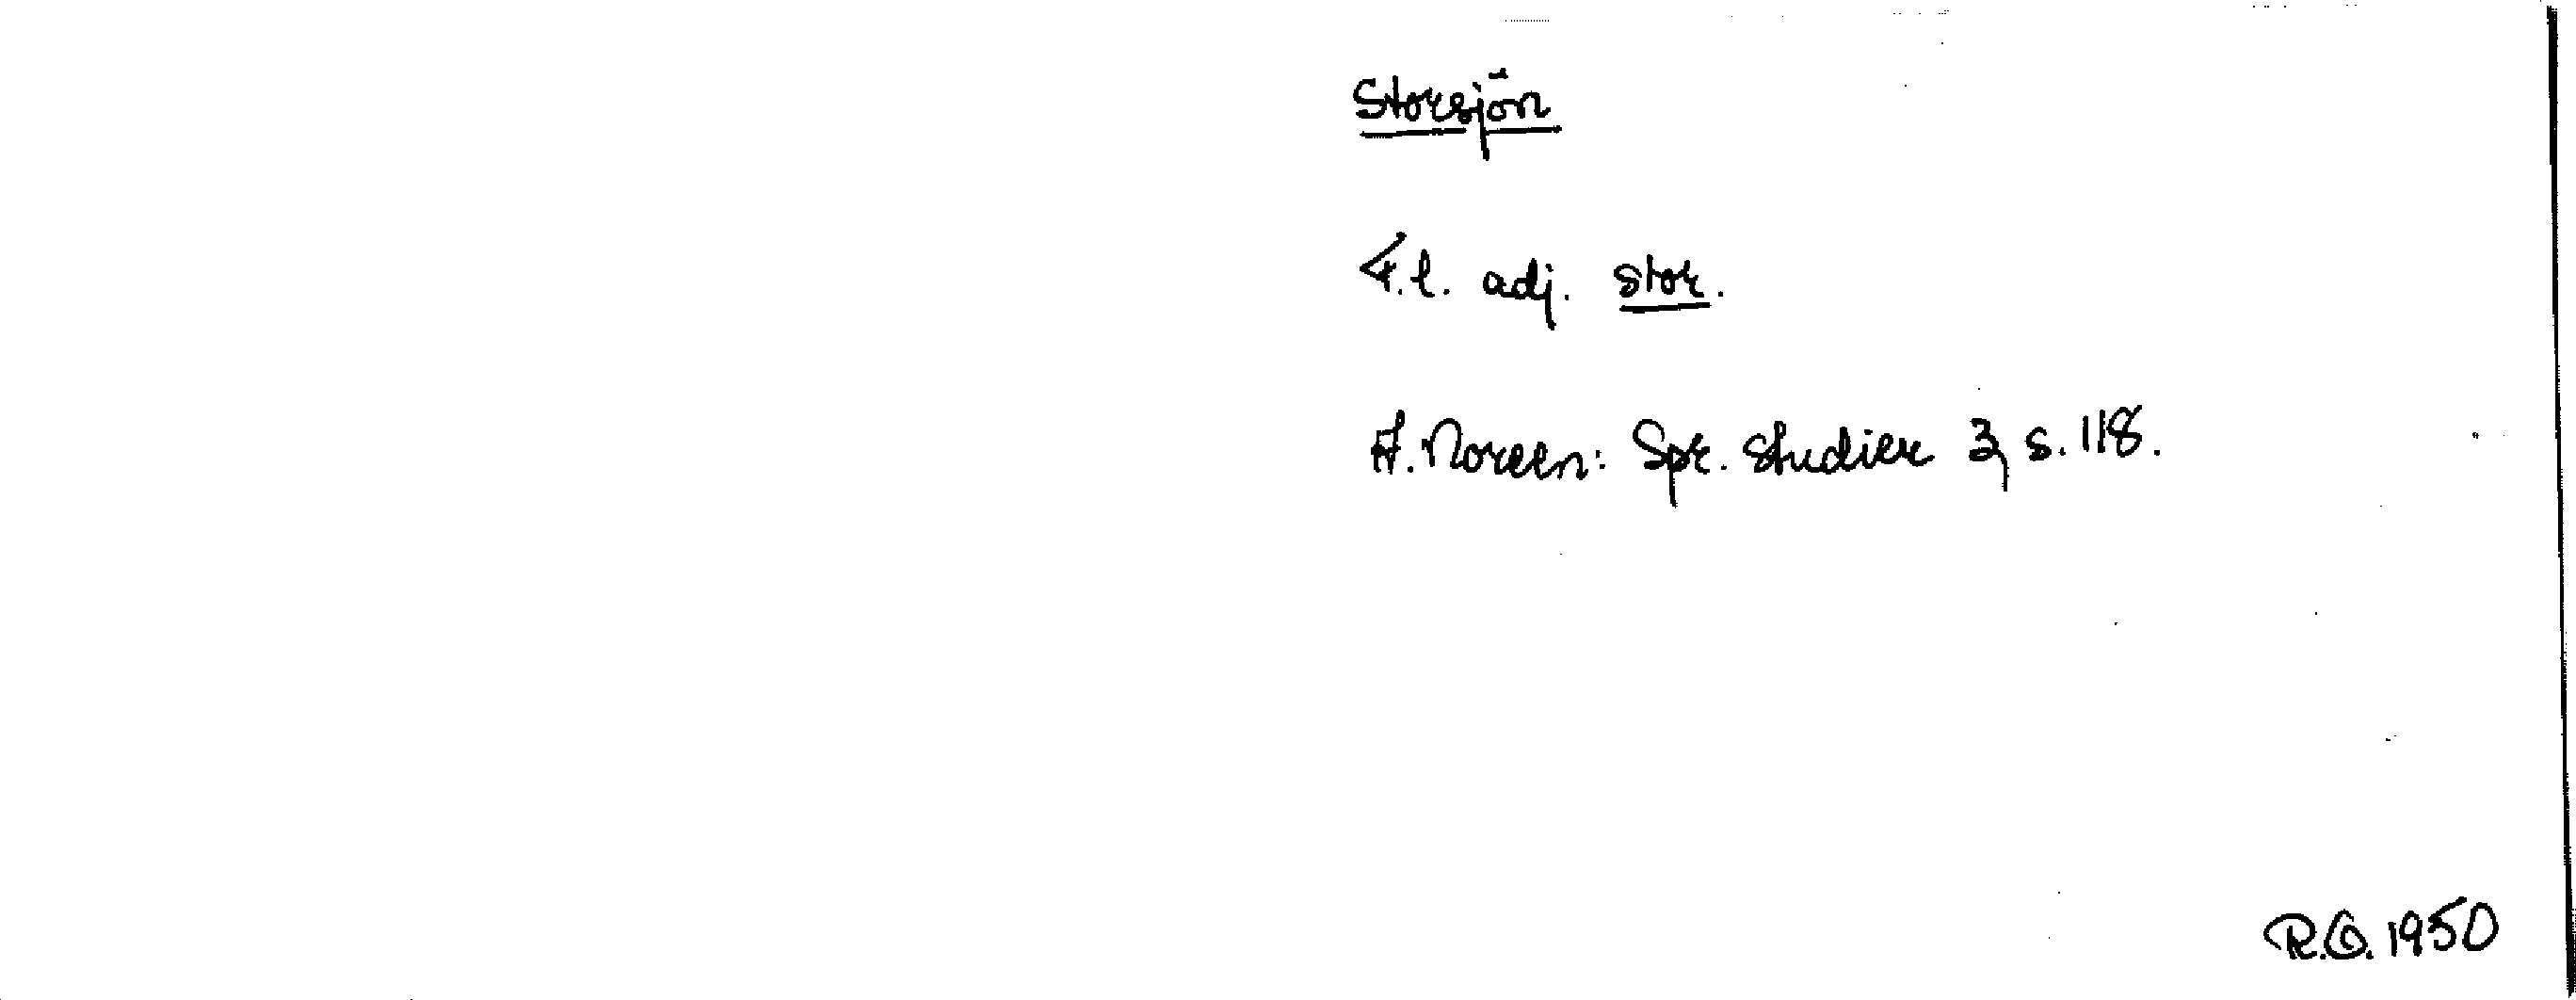 Storsjön
F.l. adj. stor.
A. Noreen: Spr. studier 3, s. 118.
R.O. 1950